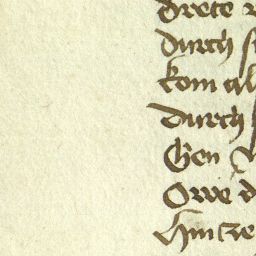 drete
durch
kom al
durch
Gen
Owe d
hintze